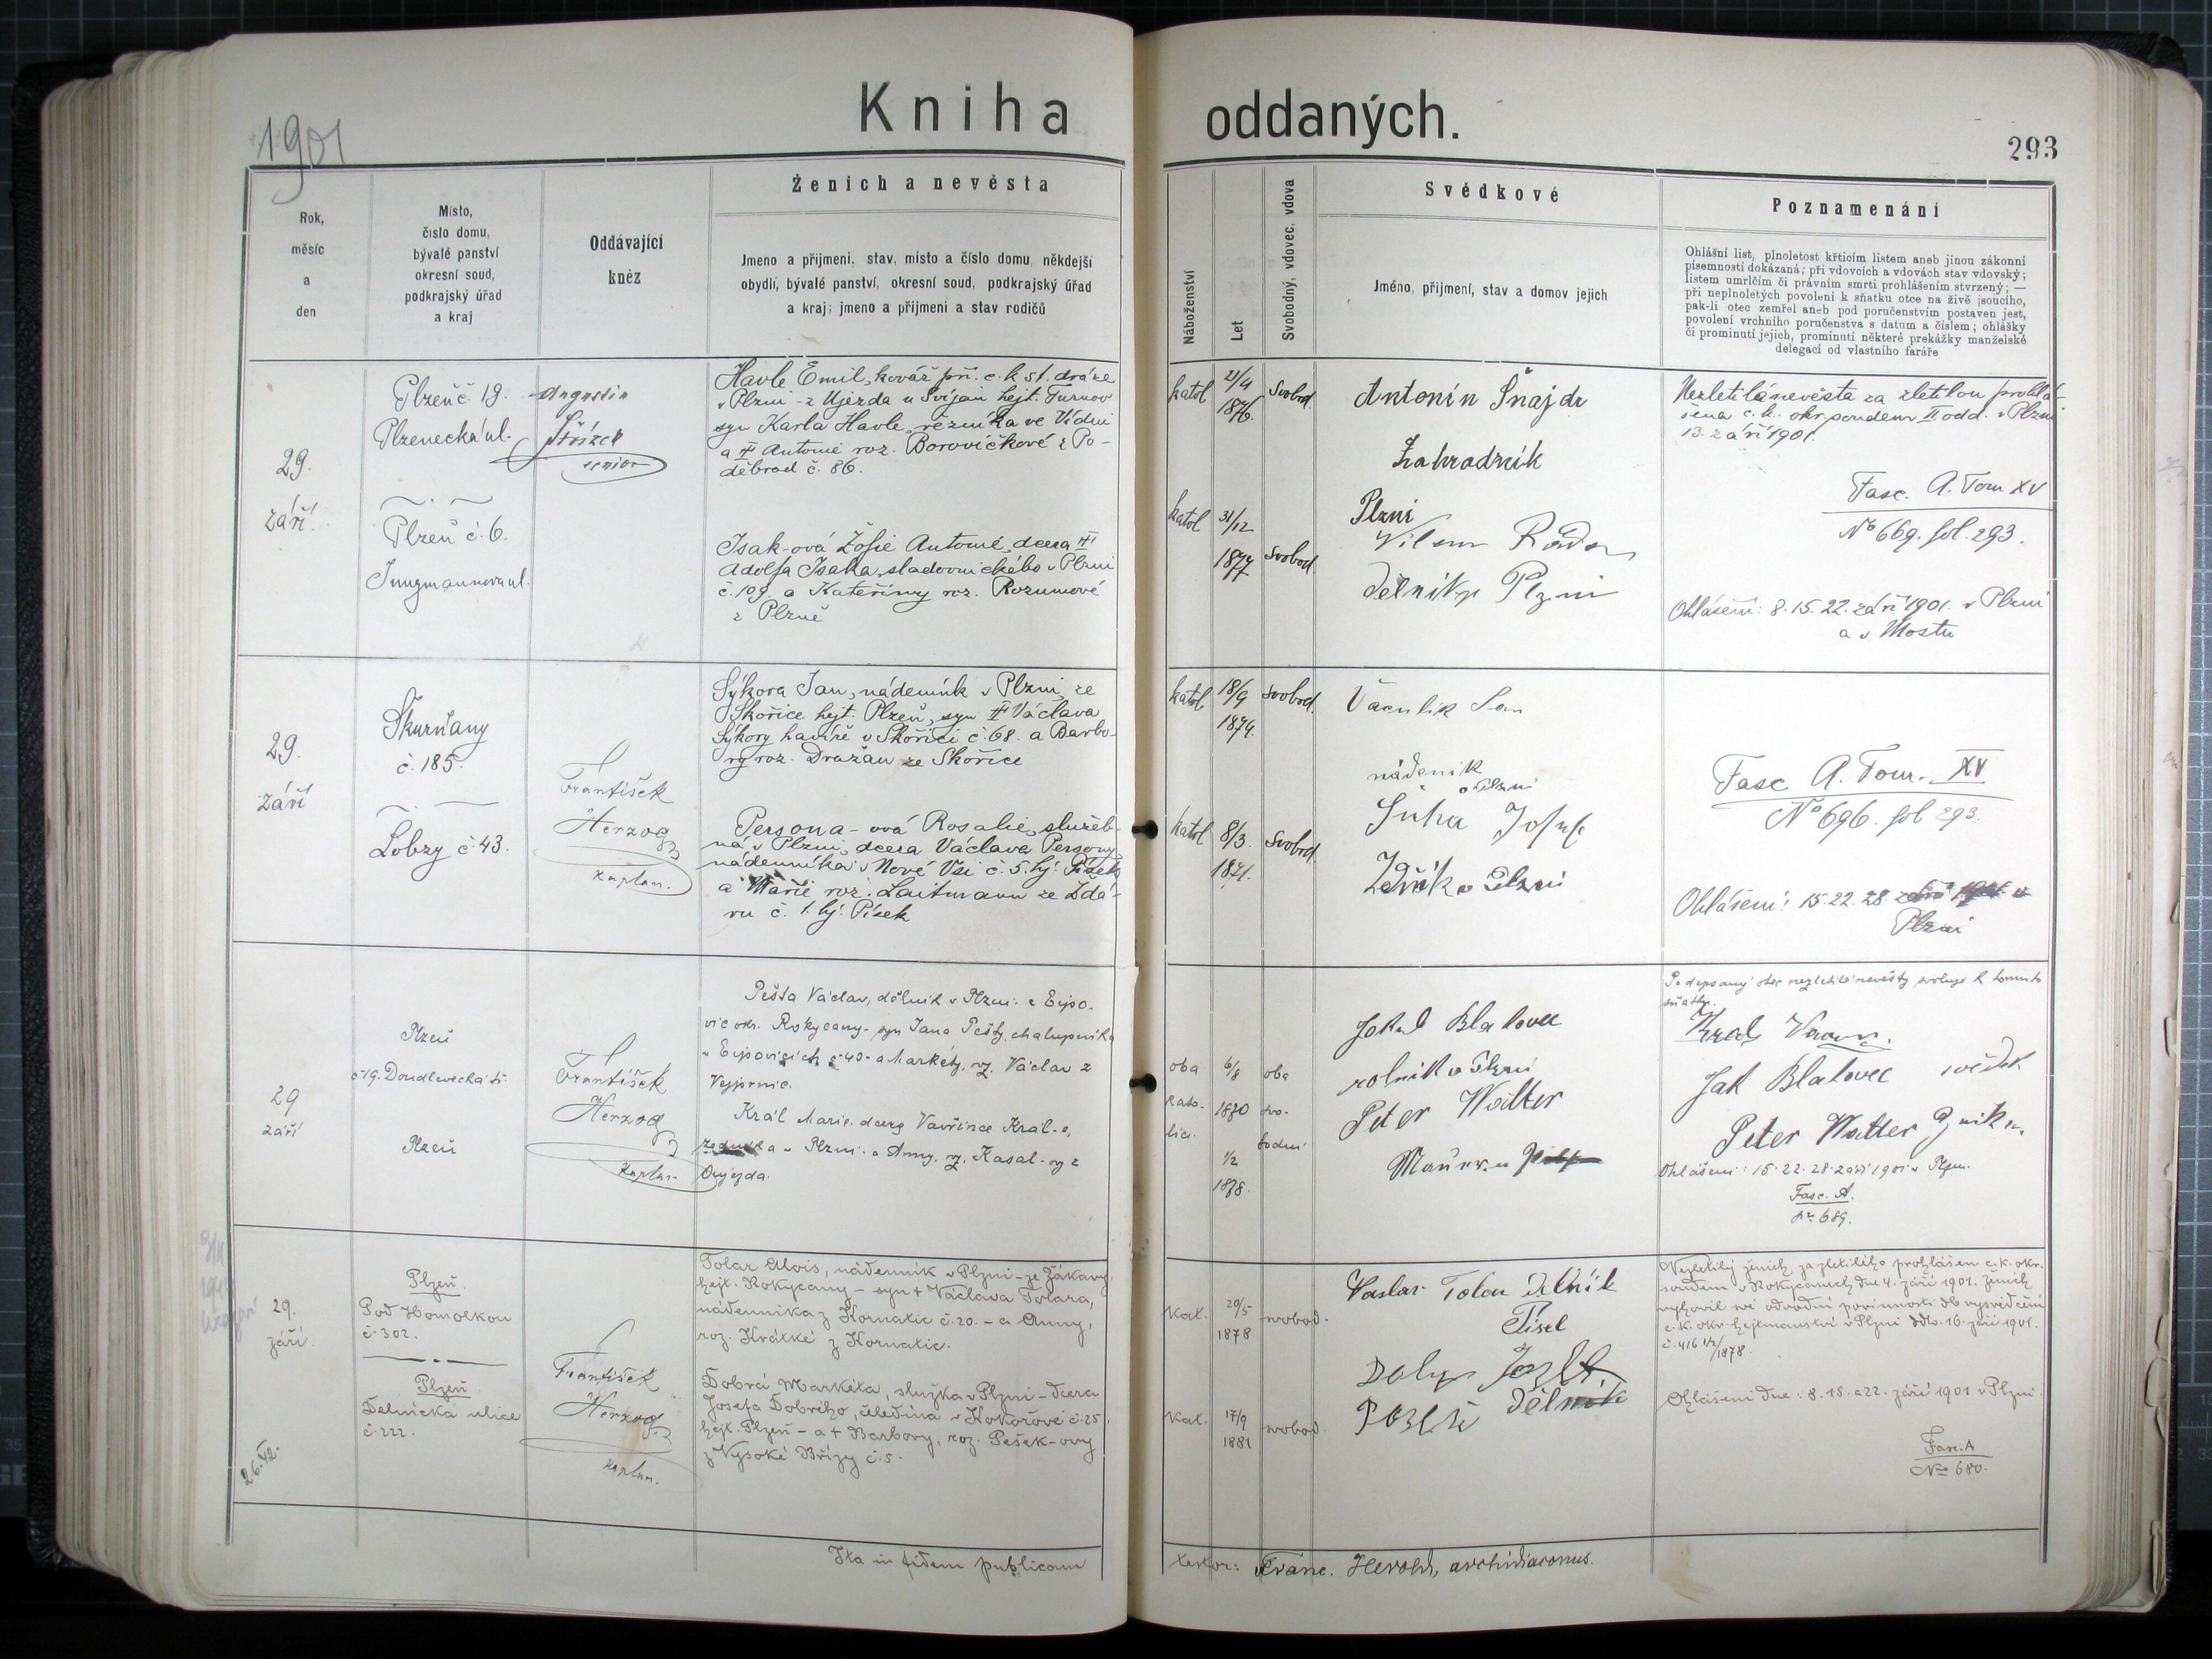 Kniha oddaných.
1901
293
Rok,
měsíc
a
den
Místo,
číslo domu,
bývalé panství
okresní soud,
podkrajský úřad
a kraj
Oddávající
kněz
Ženich a nevěsta
Jmeno a přijmeni, stav, misto a číslo domu, někdejší
obydlí, bývalé panství, okresní soud, podkrajský úřad
a kraj; jmeno a přijmeni a stav rodičů
Náboženství
Let
Svobodný, vdovec, vdova
Svědkové
Jméno, přijmení, stav a domov jejich
Poznamenání
Ohlášní list, plnoletost křticím listem aneb jinou zákonní
písemností dokázaná; při vdovcích a vdovách stav vdovský;
listem umrlčím či právním smrti prohlášením stvrzený; —
při neplnoletých povolení k sňatku otce na živě jsoucího,
pak-li otec zemřel aneb pod poručenstvím postaven jest,
povolení vrchního poručenstva s datum a číslem; ohlášky
či prominutí jejich, prominutí některé prekážky manželské
delegací od vlastního faráře
29.
září
Plzeň č. 19.
Plzenecká ul.
Plzeň č. 6.
Jungmannova ul.
Augustin
senior
Havle Emil, kovář při c. k. st. dráze
v Plzni - z Újezda u Svijan hejt. Turnov
syn Karla Havle, řezníka ve Vídni
a Antonie roz. Borovičkové z Po-
děbrad č. 86.
Isak-ová Žofie Antonie, dcera
Adolfa Isaka, sladovnického v Plzni
č. 109. a Kateřiny roz. Rozumové
z Plzně
katol 21/4 1876. svobod.
katol 31/12 1877 svobod
Antonín Šnajdr
Zahradník
Plzni
Vilem
dělník v Plzni
Nezletilá nevěsta za zletilou prohlá-
šena c. k. okr. soudem II odd. v Plzni
13. září 1901.
Fasc. A. Tom XV
No 669. fol. 293.
Ohlášení: 8. 15. 22. září 1901. v Plzni
a v Mostu
29.
září
Škurňany
č. 185.
Lobzy č. 43.
František
Herzog
kaplan.
Sýkora Jan, nádenník v Plzni, ze
Skořice hejt. Plzeň, syn Václava
Sýkory havíře v Skořici č. 68. a Barbo-
ry roz. Dražan ze Skořice
Persona-ová Rosalie, služeb-
ná v Plzni, dcera Václava Persony
nádenníka v Nové Vsi č. 5. hj. Písek
a Marie roz. Laitmann ze Žďá-
ru č. 1. hj. Písek
katol 18/9 1874. svobod.
katol 8/3. 1871. svobod.
Jan
nádeník
v Plzni
Josef
v Plzni
Fasc A. Tom. XV
No 696. fol 293.
Ohlášení: 15. 22. 28.
Plzni
29
září
Plzeň
č 19. Doudlevecká tř.
Plzeň
František
Herzog
kaplan.
Pešta Václav, dělník v Plzni z Ejpo-
vic okr. Rokycany - syn Jana Pešty, chalupníka
v Ejpovicích č 40 - a Markéty, roz. Václav z
Král Marie, dcera Vavřince Král-e,
v Plzni a Anny, roz. Kasal-ovy z
oba
kato-
líci.
6/8
1870
1/2
1878.
oba
svo-
bodni
Blatovec
rolník v Plzni
Peter Walter
Podepsaný otec nezletilé nevěsty svoluje k tomuto
sňatku.
Jak Blatovec svědek
Peter Walter
Ohlášení: 15. 22. 28. září 1901 v Plzni.
Fasc. A.
No 689.
29.
září
26. XI.
Plzeň.
Pod Homolkou
č. 302.
Plzeň
Dělnická ulice
č. 222.
František
Herzog
kaplan.
Tolar Alois, nádenník v Plzni - ze Žákavy
hejt. Rokycany - syn + Václava Tolara,
nádenníka z Kornatic č. 20. - a Anny,
roz. Krátké z Kornatic.
Dobrá Markéta, služka v Plzni - dcera
Josefa Dobrého, čeledína v Kokořově č. 25
hejt. Plzeň - a + Barbory, roz. Pešek-ovy
z Vysoké Břízy č. 5.
kat. 20/5 1878 svobod.
kat. 17/9 1881 svobod.
Tolar dělník
dělník
Nezletilý ženich za zletilého prohlášen c. k. okr.
soudem v Rokycanech dne 4. září 1901. Ženich
vyhověl své odvodní povinnosti dle vysvědčení
c. k. okr. hejtmanství v Plzni ddto. 16. září 1901.
č. 416 /1878.
Ohlášení dne: 8. 15. a 22. září 1901 v Plzni.
Fasc. A
No 680.
Ita in fidem publicam testor: Franc. Herold, archidiaconus.